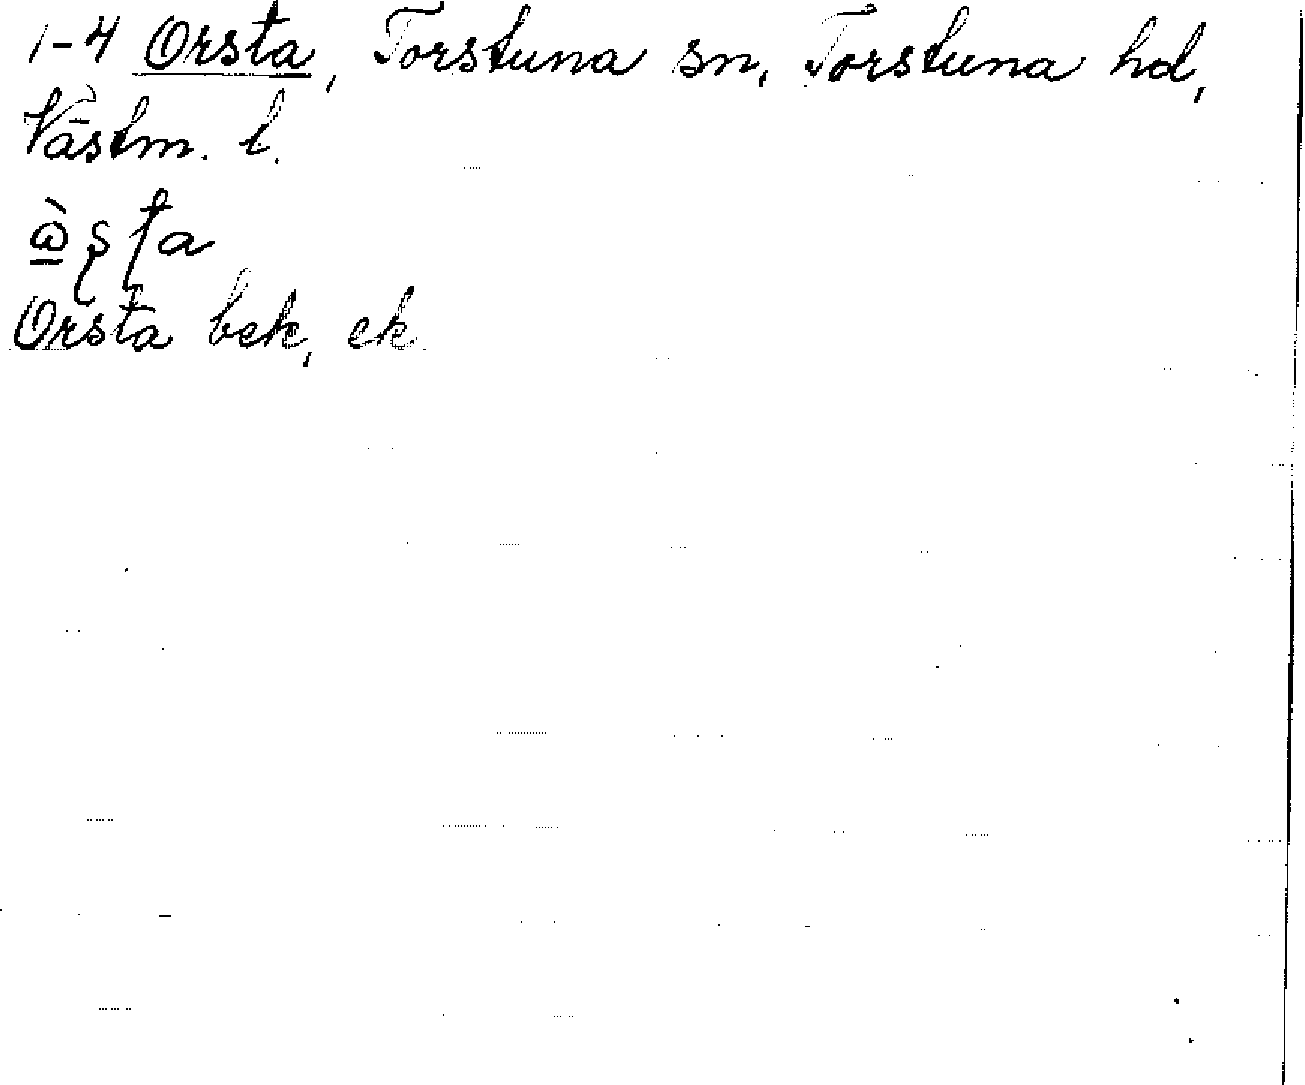 1-4 Orsta, Torstuna sn, Torstuna hd,
Västm. l.
Orsta bek, ek